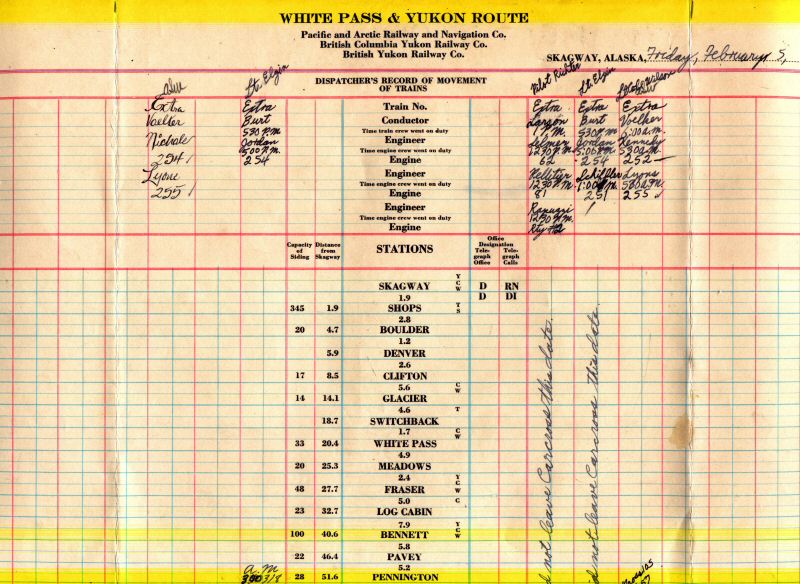 WHITE PASS & YUKON ROUTE
Pacific and Arctic Railway and Navigation Co.
British Columbia Yukon Railway Co.
British Yukon Railway Co.
SKAGWAY, ALASKA, Friday, February 5,
DISPATCHER'S RECORD OF MOVEMENT
OF TRAINS
Lt. Elgin Lt. Elgin
Extra Extra Train No. Extra Extra Extra
Voelker Burt Conductor Larson Burt Voelker
530 P.M. Time train crew went on duty 1 P.M. 530 P.M. 6:00 a.m.
Nichols Jordan Engineer Jordan Kennedy
500 P.M. Time engine crew went on duty 1230 P.M. 5:00 P.M. 530 a.m.
254 254 Engine 62 254 252
Lyons Engineer Schiffler Lyons
Time engine crew went on duty 1230 P.M. 1:00 P.M. 530 a.m.
255 Engine 81 251 255
Engineer
Time engine crew went on duty 1230 P.M.
Engine
Capacity of Siding Distance from Skagway STATIONS Office Designation Telegraph Office Telegraph Calls
SKAGWAY Y C W D RN
1.9 D DI
345 1.9 SHOPS T S
2.8
20 4.7 BOULDER
1.2
5.9 DENVER
2.6
17 8.5 CLIFTON
5.6 C W
14 14.1 GLACIER
4.6 T
18.7 SWITCHBACK
1.7 C W
33 20.4 WHITE PASS
4.9
20 25.3 MEADOWS
2.4 Y C W
48 27.7 FRASER
5.0 C
23 32.7 LOG CABIN
7.9 Y C W
100 40.6 BENNETT
5.8
22 46.4 PAVEY
5.2
A.M
28 51.6 PENNINGTON
d not leave Carcross this date.
d not leave Carcross this date.